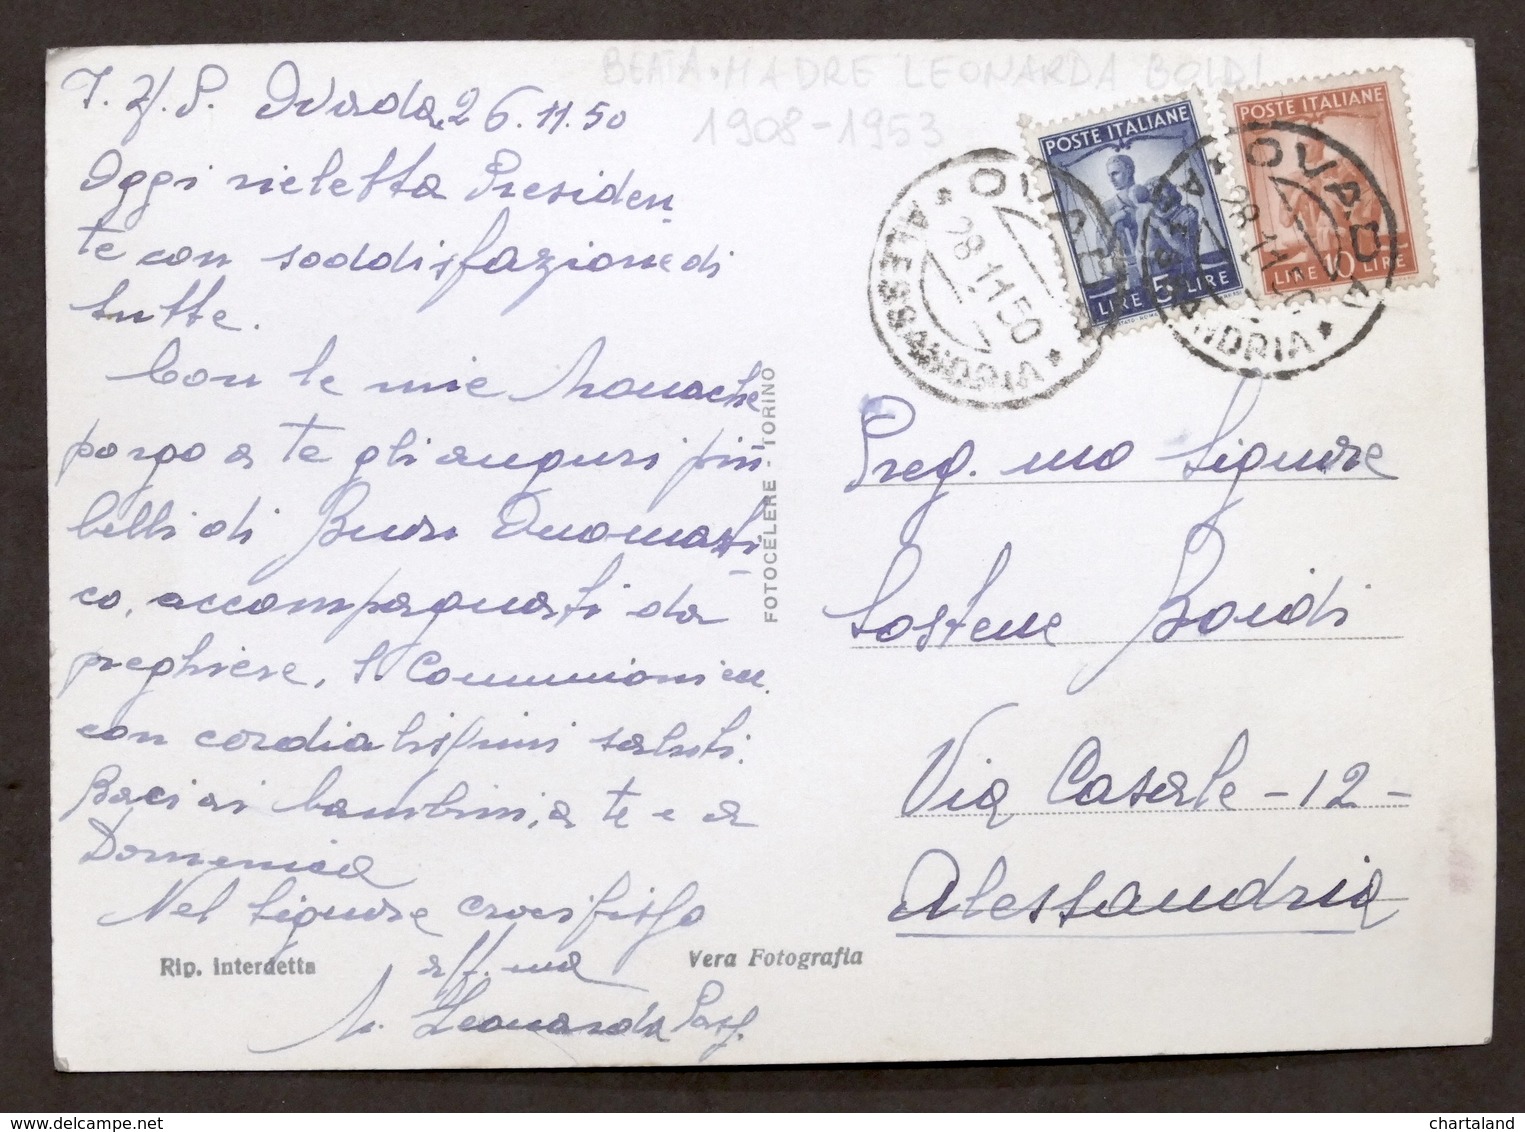 BEATA MADRE LEONARDA BOIDI
1908-1953
Ovada, 26.11.50
Oggi rieletta Presiden
te con soddisfazione di
tutte.
Con le mie Monache
porgo a te gli auguri più
belli di Buon Onomasti
co, accompagnati da
preghiere, S. Communioni ecc.
con cordialissimi saluti.
Baci ai bambini, a te e a
Domenica
Nel Signore crocifisso
aff.ma
M. Leonarda Pass.
Rip. interdetta
Vera Fotografia
FOTOCELERE - TORINO
POSTE ITALIANE
LIRE 5 LIRE
POSTE ITALIANE
LIRE 10 LIRE
OVADA
28.11.50
* ALESSANDRIA *
OVADA
28.11.50
ALESSANDRIA *
Preg.mo Signore
Sostene Boidi
Via Casale - 12 -
Alessandria
www.delcampe.net
chartaland